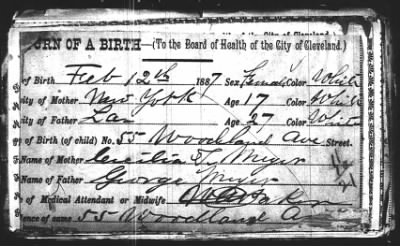 of the City of Cleveland.
URN OF A BIRTH—(To the Board of Health of the City of Cleveland.)
of Birth Feb 12th 1887 Sex Female Color White
ity of Mother New York Age 17 Color White
ity of Father Age 27 Color White
of Birth (of child) No. 55 Woodland Ave Street.
Name of Mother Cecilia Meyer
Name of Father George Meyer
of Medical Attendant or Midwife
dence of same 55 Woodland A